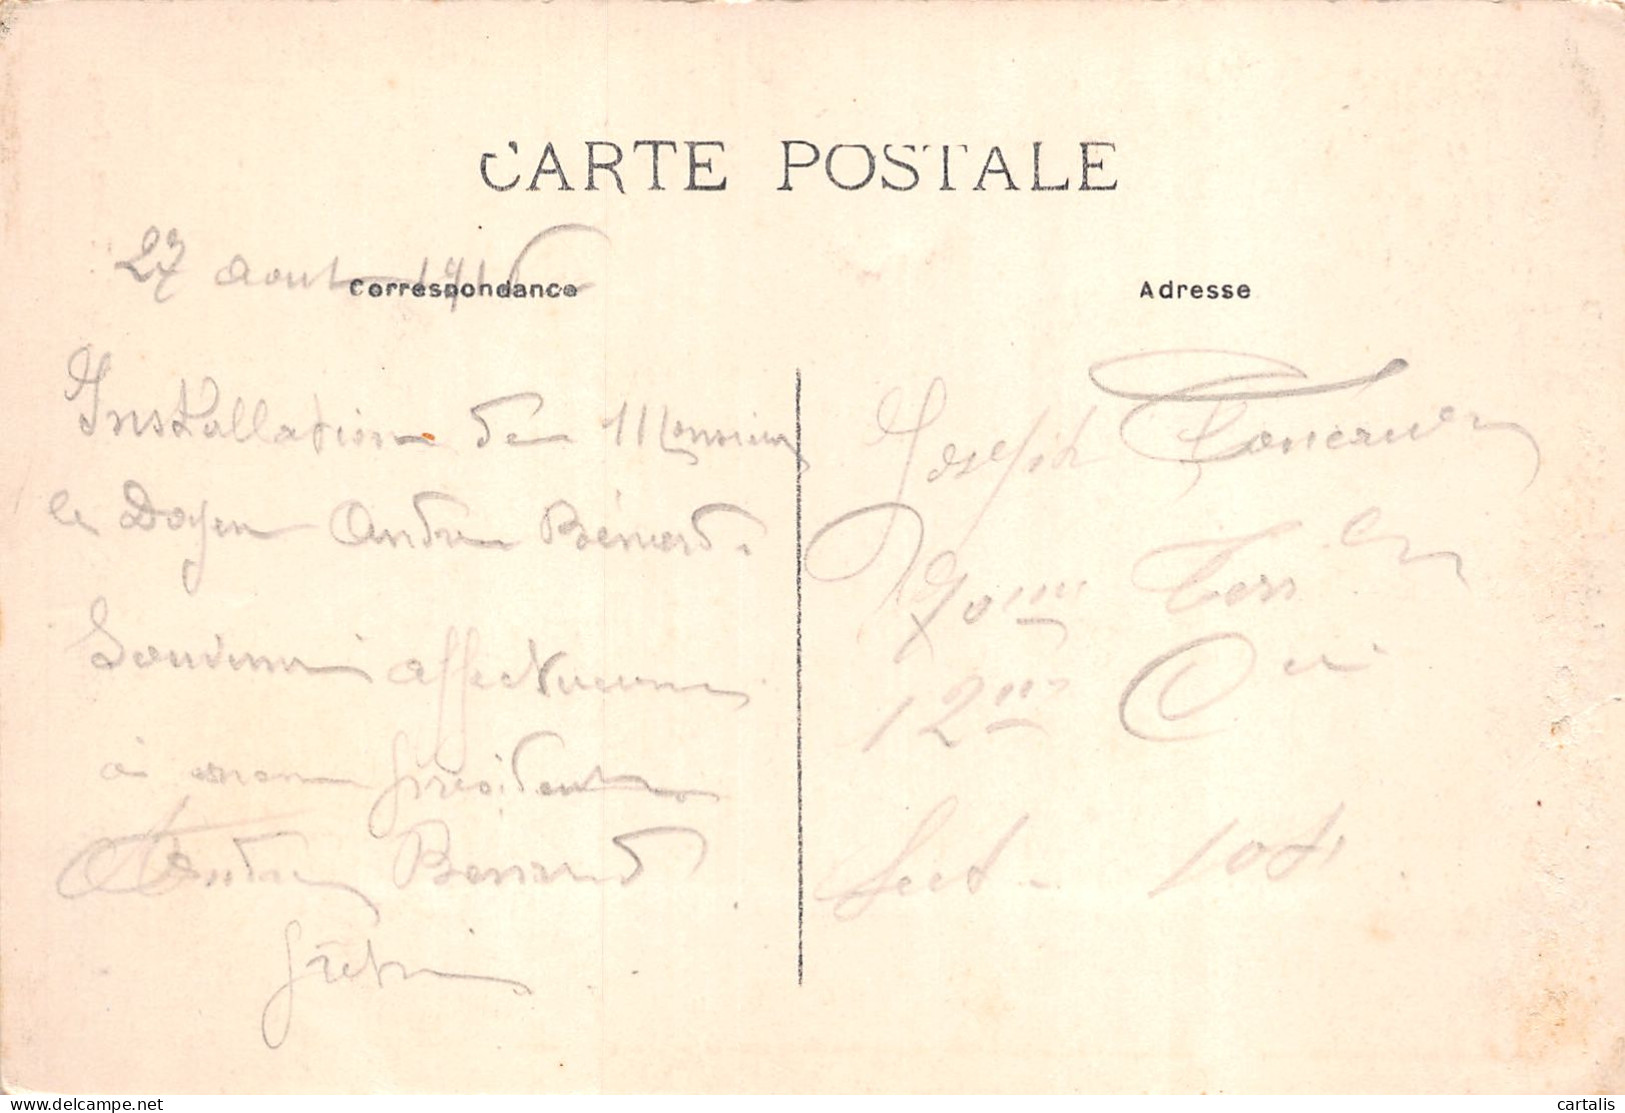 CARTE POSTALE
27 août
Correspondance
Installation de Monsieur
le Doyen André Bénard.
Souvenir affectueux
à mon président
André Bénard
prêtre
Adresse
Joseph
70ème Terr
12ème Cie
Sect. 108.
www.delcampe.net
cartalis